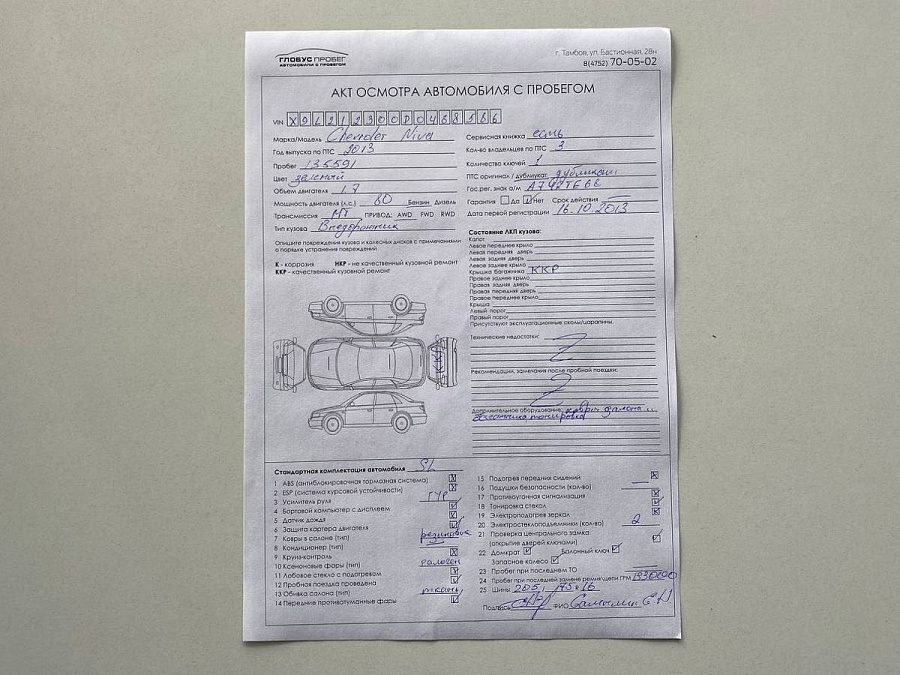 ГЛОБУС ПРОБЕГ
АВТОМОБИЛИ С ПРОБЕГОМ
г. Тамбов, ул. Бастионная, 28н
8(4752) 70-05-02
АКТ ОСМОТРА АВТОМОБИЛЯ С ПРОБЕГОМ
VIN X9L212300D0468566
Марка/Модель Chevrolet Niva
Год выпуска по ПТС 2013
Пробег 135591
Цвет зеленый
Объем двигателя 1.7
Мощность двигателя (л.с.) 80 Бензин Дизель
Трансмиссия МТ ПРИВОД: AWD FWD RWD
Тип кузова Внедорожник
Опишите повреждения кузова и колесных дисков с примечаниями
о порядке устранения повреждений
К - коррозия НКР - не качественный кузовной ремонт
ККР - качественный кузовной ремонт
ККР
Сервисная книжка есть
Кол-во владельцев по ПТС 3
Количество ключей 1
ПТС оригинал / дубликат дубликат
Гос. рег. знак а/м
Гарантия Да Нет Срок действия
Дата первой регистрации 16.10.2013
Состояние ЛКП кузова:
Капот
Левое переднее крыло
Левая передняя дверь
Левая задняя дверь
Левое заднее крыло
Крышка багажника ККР
Правое заднее крыло
Правая задняя дверь
Правая передняя дверь
Правое переднее крыло
Крыша
Левый порог
Правый порог
Присутствуют эксплуатационные сколы/царапины.
Технические недостатки:
Рекомендации, замечания после пробной поездки:
Дополнительное оборудование:
тонировка
Стандартная комплектация автомобиля SL
1 ABS (антиблокировочная тормозная система)
2 ESP (система курсовой устойчивости)
3 Усилитель руля ГУР
4 Бортовой компьютер с дисплеем
5 Датчик дождя
6 Защита картера двигателя
7 Ковры в салоне (тип) резиновые
8 Кондиционер (тип)
9 Круиз-контроль
10 Ксеноновые фары (тип) галоген
11 Лобовое стекло с подогревом
12 Пробная поездка проведена
13 Обивка салона (тип) ткань
14 Передние противотуманные фары
15 Подогрев передних сидений
16 Подушки безопасности (кол-во)
17 Противоугонная сигнализация
18 Тонировка стекол
19 Электроподогрев зеркал
20 Электростеклоподъемники (кол-во) 2
21 Проверка центрального замка
(открытие дверей ключами)
22 Домкрат Балонный ключ
Запасное колесо
23 Пробег при последнем ТО
24 Пробег при последней замене ремня/цепи ГРМ
25 Шины 205/75 R 16
Подпись ФИО